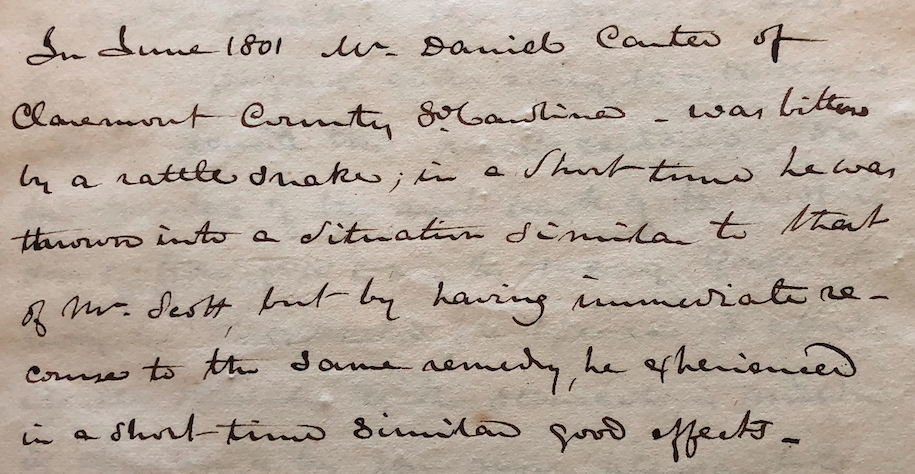 In June 1801 Mr. Daniel Carter of
Claremont County, So. Carolina - was bitten
by a rattle snake; in a short time he was
thrown into a situation similar to that
of Mr. Scott, but by having immediate re-
course to the same remedy, he experienced
in a short time similar good effects. -